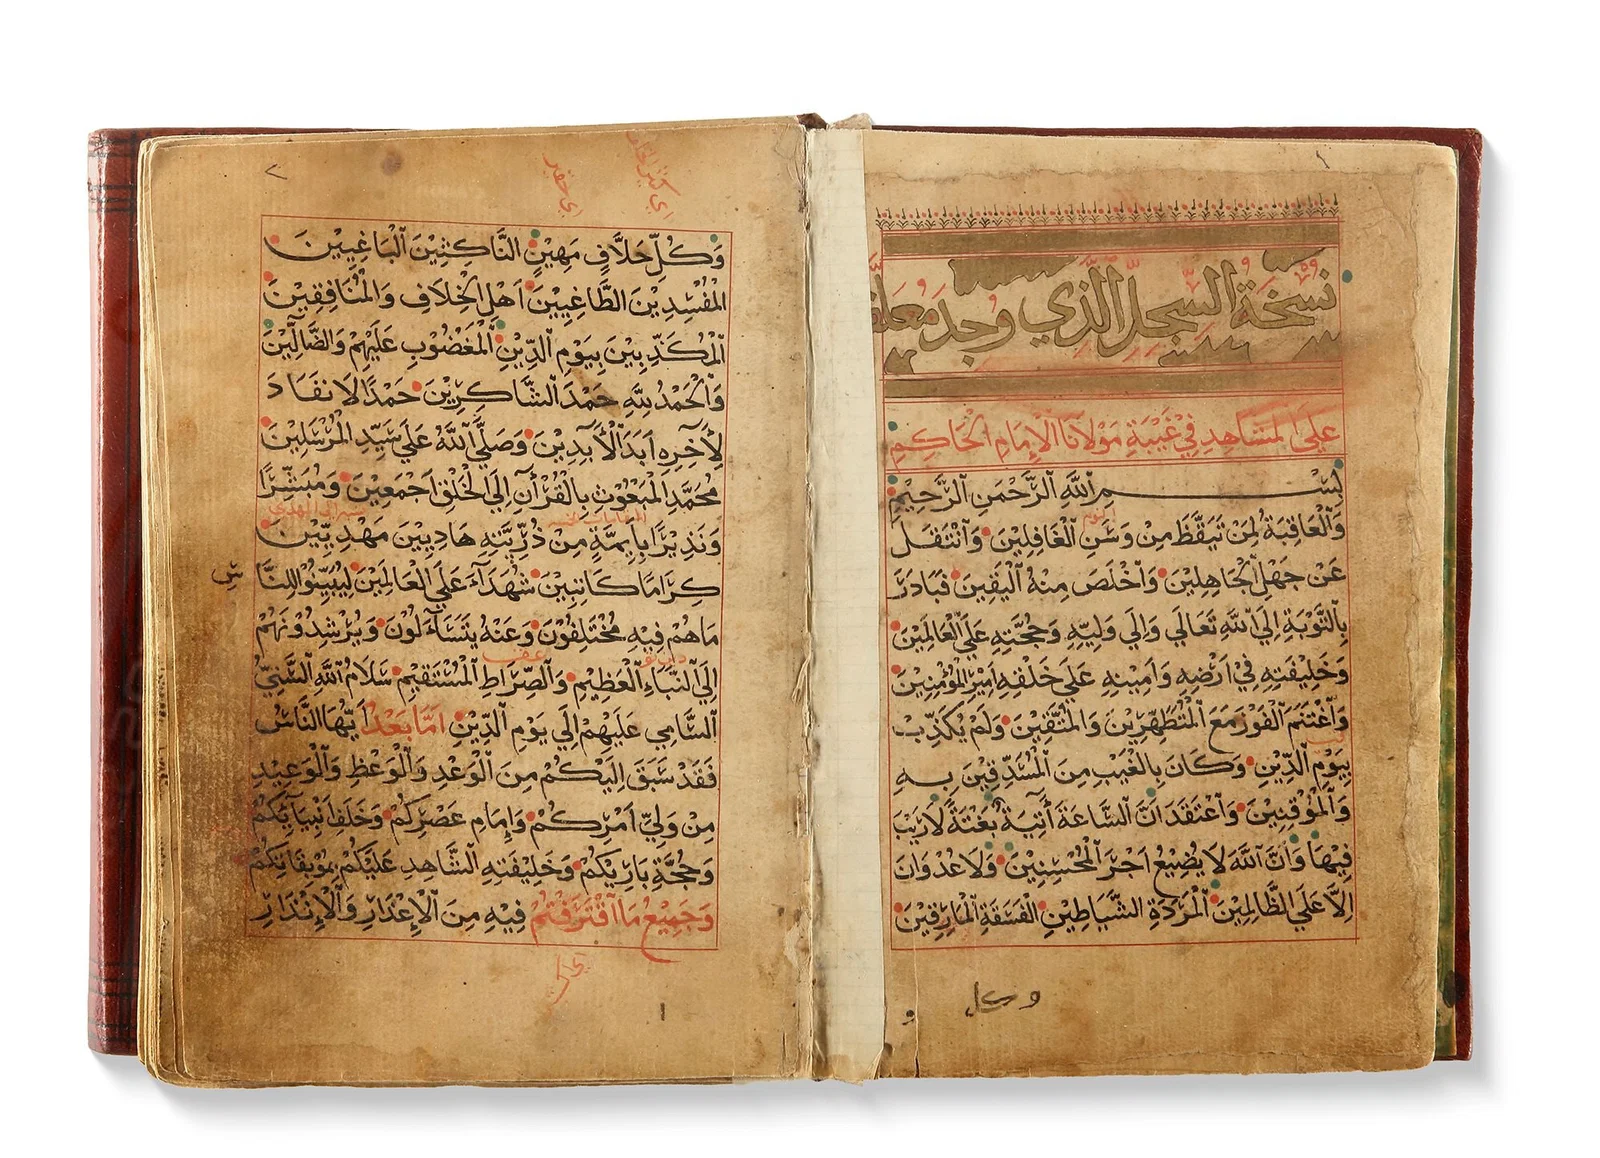 نسخة السجل الذي وجد معلقا
على المشاهد في غيبة مولانا الإمام الحاكم
بِسْمِ اللَّهِ الرَّحْمَنِ الرَّحِيمِ
وَالْعَاقِبَةُ لِمَنْ تَيَقَّظَ مِنْ وَسَنِ الْغَافِلِينَ وَانْتَقَلَ
عَنْ جَهْلِ الْجَاهِلِينَ وَأَخْلَصَ مِنْهُ الْيَقِينَ فَبَادَرَ
بِالتَّوْبَةِ إِلَى اللَّهِ تَعَالَى وَإِلَى وَلِيِّهِ وَحُجَّتِهِ عَلَى الْعَالَمِينَ
وَخَلِيفَتِهِ فِي أَرْضِهِ وَأَمِينِهِ عَلَى خَلْقِهِ أَمِيرِ الْمُؤْمِنِينَ
وَاغْتَنَمَ الْفَوْزَ مَعَ الْمُتَطَهِّرِينَ وَالْمُتَّقِينَ وَلَمْ يُكَذِّبْ
بِيَوْمِ الدِّينِ وَكَانَ بِالْغَيْبِ مِنَ الْمُسَدِّقِينَ بِهِ
وَالْمُوقِنِينَ وَاعْتَقَدَ أَنَّ السَّاعَةَ آتِيَةٌ بَغْتَةً لَا رَيْبَ
فِيهَا وَأَنَّ اللَّهَ لَا يُضِيعُ أَجْرَ الْمُحْسِنِينَ وَلَا عُدْوَانَ
إِلَّا عَلَى الظَّالِمِينَ الْمَرَدَةِ الشَّيَاطِينِ الْفَسَقَةِ الْمَارِقِينَ
وكل
٢
وَكُلِّ حَلَّافٍ مَهِينٍ النَّاكِثِينَ الْبَاغِيِينَ
الْمُفْسِدِينَ الطَّاغِيِينَ أَهْلِ الْخِلَافِ وَالْمُنَافِقِينَ
الْمُكَذِّبِينَ بِيَوْمِ الدِّينِ الْمَغْضُوبِ عَلَيْهِمْ وَالضَّالِّينَ
وَالْحَمْدُ لِلَّهِ حَمْدَ الشَّاكِرِينَ حَمْدًا لَا نَفَادَ
لِآخِرِهِ أَبَدَ الْأَبَدِينَ وَصَلَّى اللَّهُ عَلَى سَيِّدِ الْمُرْسَلِينَ
مُحَمَّدٍ الْمَبْعُوثِ بِالْقُرْآنِ إِلَى الْخَلْقِ أَجْمَعِينَ وَمُبَشِّرًا
وَنَذِيرًا بِأَيِمَّةٍ مِنْ ذُرِّيَّتِهِ هَادِيِينَ مَهْدِيِّينَ
كِرَامًا كَاتِبِينَ شُهَدَاءَ عَلَى الْعَالَمِينَ لِيُبَيِّنُوا لِلنَّاسِ
مَا هُمْ فِيهِ مُخْتَلِفُونَ وَعَنْهُ يَتَسَاءَلُونَ وَيُرْشِدُونَهُمْ
إِلَى النَّبَاءِ الْعَظِيمِ وَالصِّرَاطِ الْمُسْتَقِيمِ سَلَامُ اللَّهِ السَّنِيُّ
السَّامِي عَلَيْهِمْ إِلَى يَوْمِ الدِّينِ أَمَّا بَعْدُ أَيُّهَا النَّاسُ
فَقَدْ سَبَقَ إِلَيْكُمْ مِنَ الْوَعْدِ وَالْوَعْظِ وَالْوَعِيدِ
مِنْ وَلِيِّ أَمْرِكُمْ وَإِمَامِ عَصْرِكُمْ وَخَلَفِ أَنْبِيَائِكُمْ
وَحُجَّةِ بَارِيكُمْ وَخَلِيفَتِهِ الشَّاهِدِ عَلَيْكُمْ بِمُوبِقَاتِكُمْ
وَجَمِيعِ مَا اقْتَرَفْتُمْ فِيهِ مِنَ الْإِعْذَارِ وَالْإِنْذَارِ